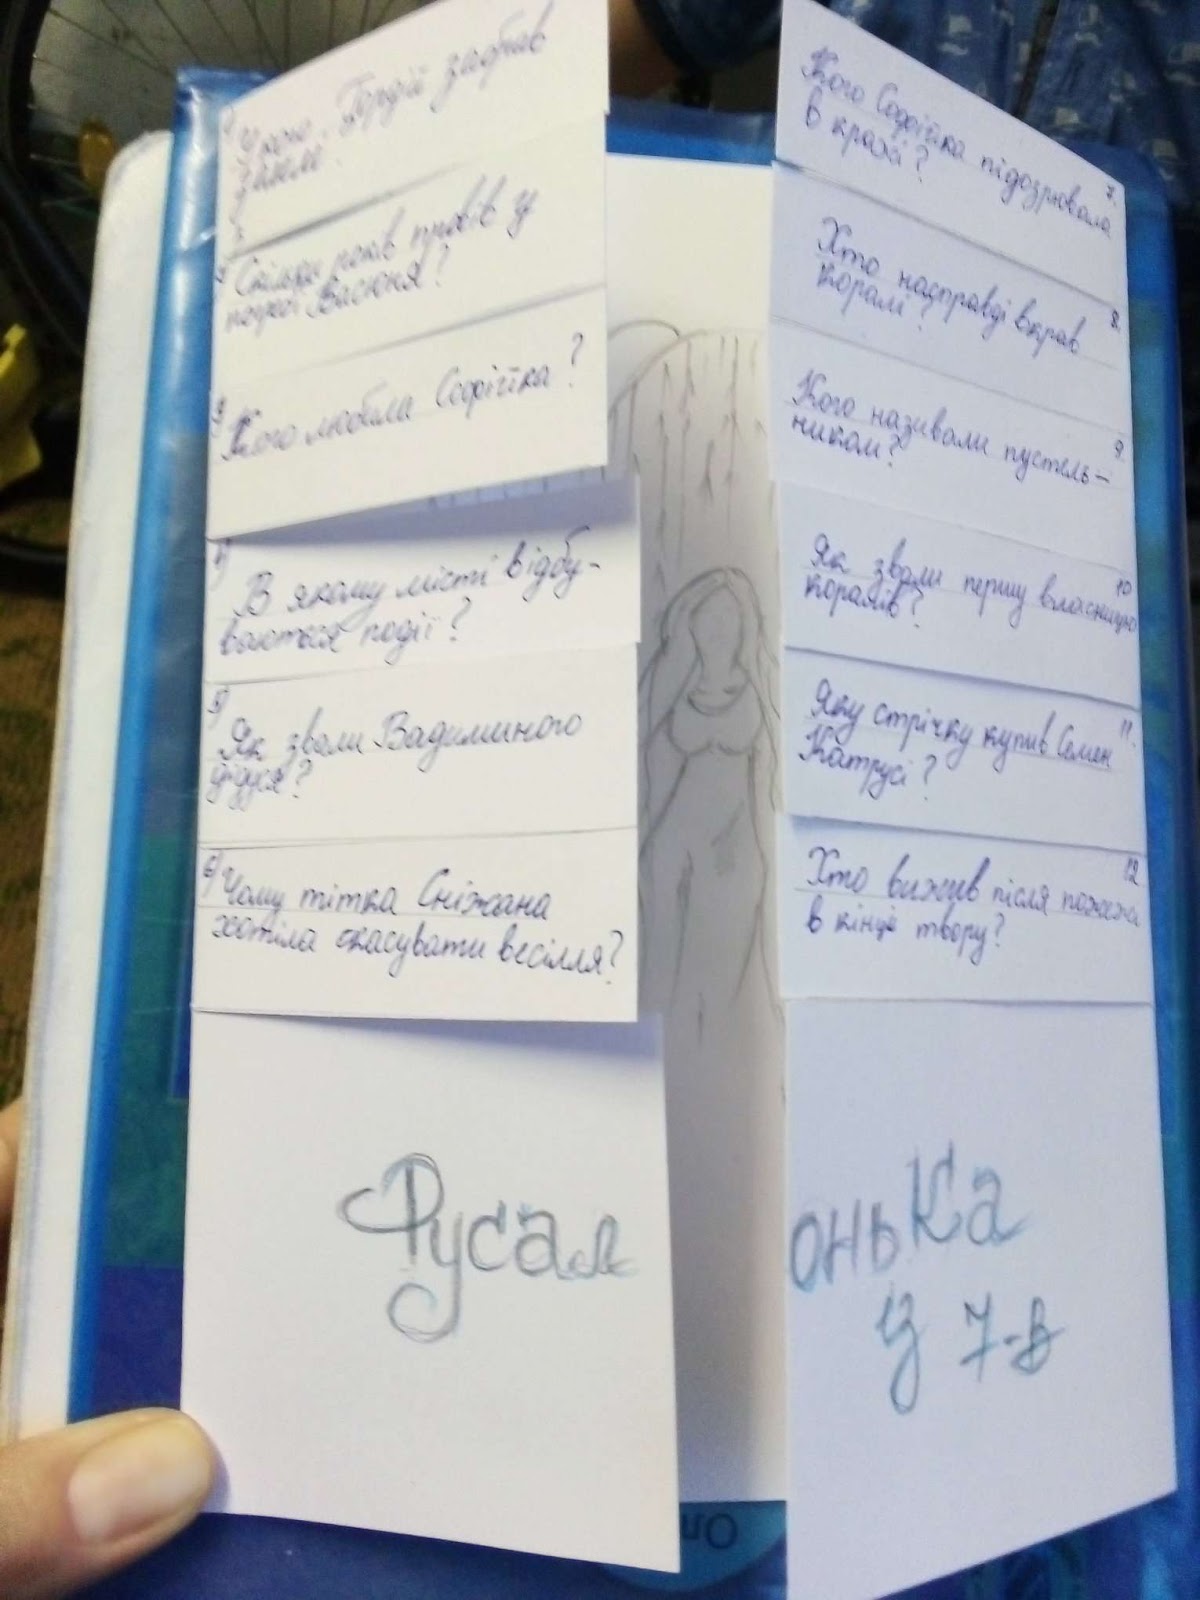 Гордій забрав
2) Скільки років провів у
Васюня?
3) Кого любила Софійка?
4) В якому місті відбу-
ваються події?
5) Як звали Вадиминого
дідуся?
6) Чому тітка Сніжана
хотіла скасувати весілля?
Русал
7. Кого Софійка підозрювала
в кражі?
8. Хто насправді вкрав
коралі?
9. Кого називали пустель-
ником?
10 Як звали першу власницю
коралів?
11. Яку стрічку купив Семен
Катрусі?
12 Хто вижив після пожежі
в кінці твору?
онька
із 7-в
Оп